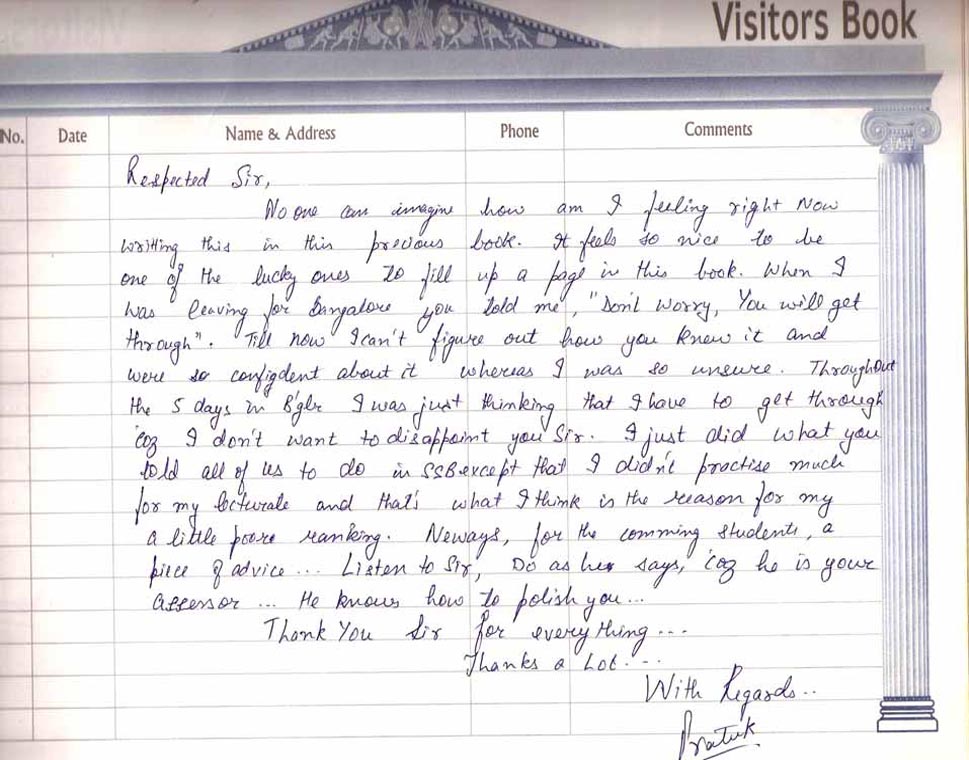 Visitors Book
No. Date Name & Address Phone Comments
Respected Sir,
No one can imagine how am I feeling right Now
writting this in this precious book. It feels so nice to be
one of the lucky ones to fill up a page in this book. When I
was leaving for Bangalore you told me, "Don't worry, You will get
through". Till now I can't figure out how you knew it and
were so configdent about it whereas I was so unsure. Throughout
the 5 days in B'glr I was just thinking that I have to get through
'coz I don't want to disappoint you Sir. I just did what you
told all of us to do in SSB except that I didn't practise much
for my lecturate and that's what I think is the reason for my
a little poore ranking. Neways, for the comming students, a
piece of advice ... Listen to Sir, Do as he says, 'coz he is your
assessor ... He knows how to polish you...
Thank You Sir for everything...
Thanks a Lot...
With Regards..